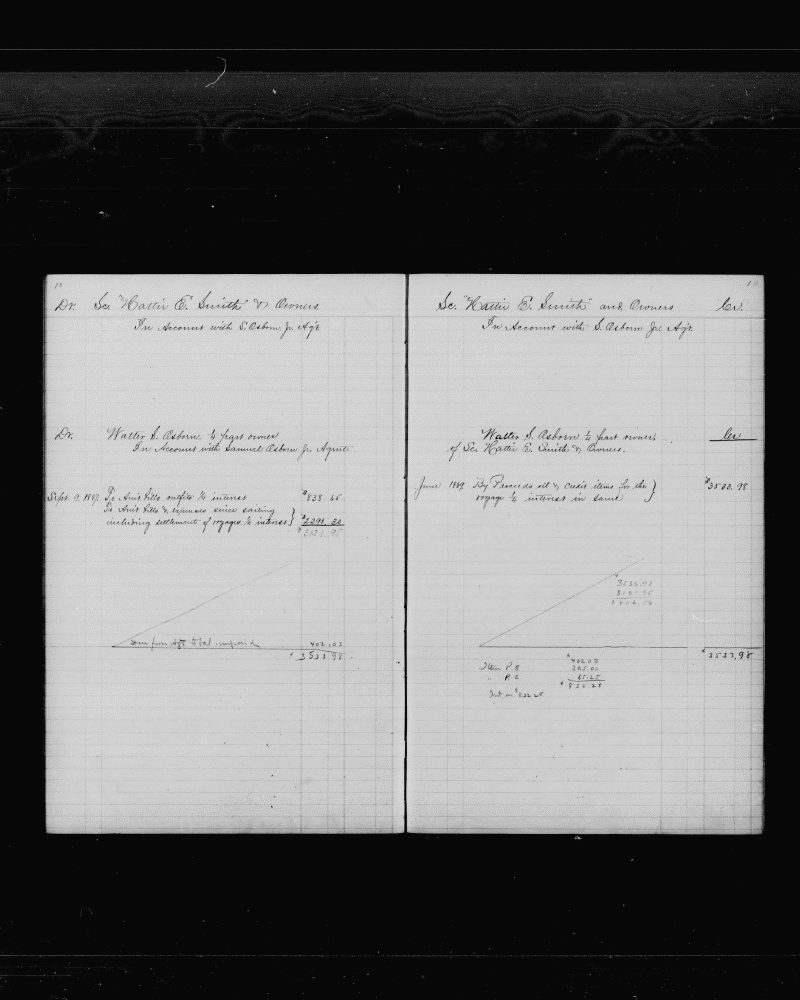 Dr. Sc. "Hattie E. Smith" & Owners
In Account with S. Osborn Jr. Agt.
Dr. Walter S. Osborn part owner
In Account with Samuel Osborn Jr. Agent
Sept. 9. 1887. To Am't bills outfits interest $838 65
To Am't bills & expenses since sailing
including settlement of voyage interest } $2291 30
$3131.95
Sum from Agt to bal. 402.03
$3533.98
Sc. "Hattie E. Smith" and Owners Cr.
In Account with S. Osborn Jr. Agt.
Walter S. Osborn part owner Cr
of Sc. Hattie E. Smith & Owners.
June 1889 By Proceeds oil & credit items for the } $3533.98
voyage interest in same
$3533.98
3131.95
$402.03
$3533.98
Item P. 8 $402.03
" P. 6
$832.28
Int on $832.28